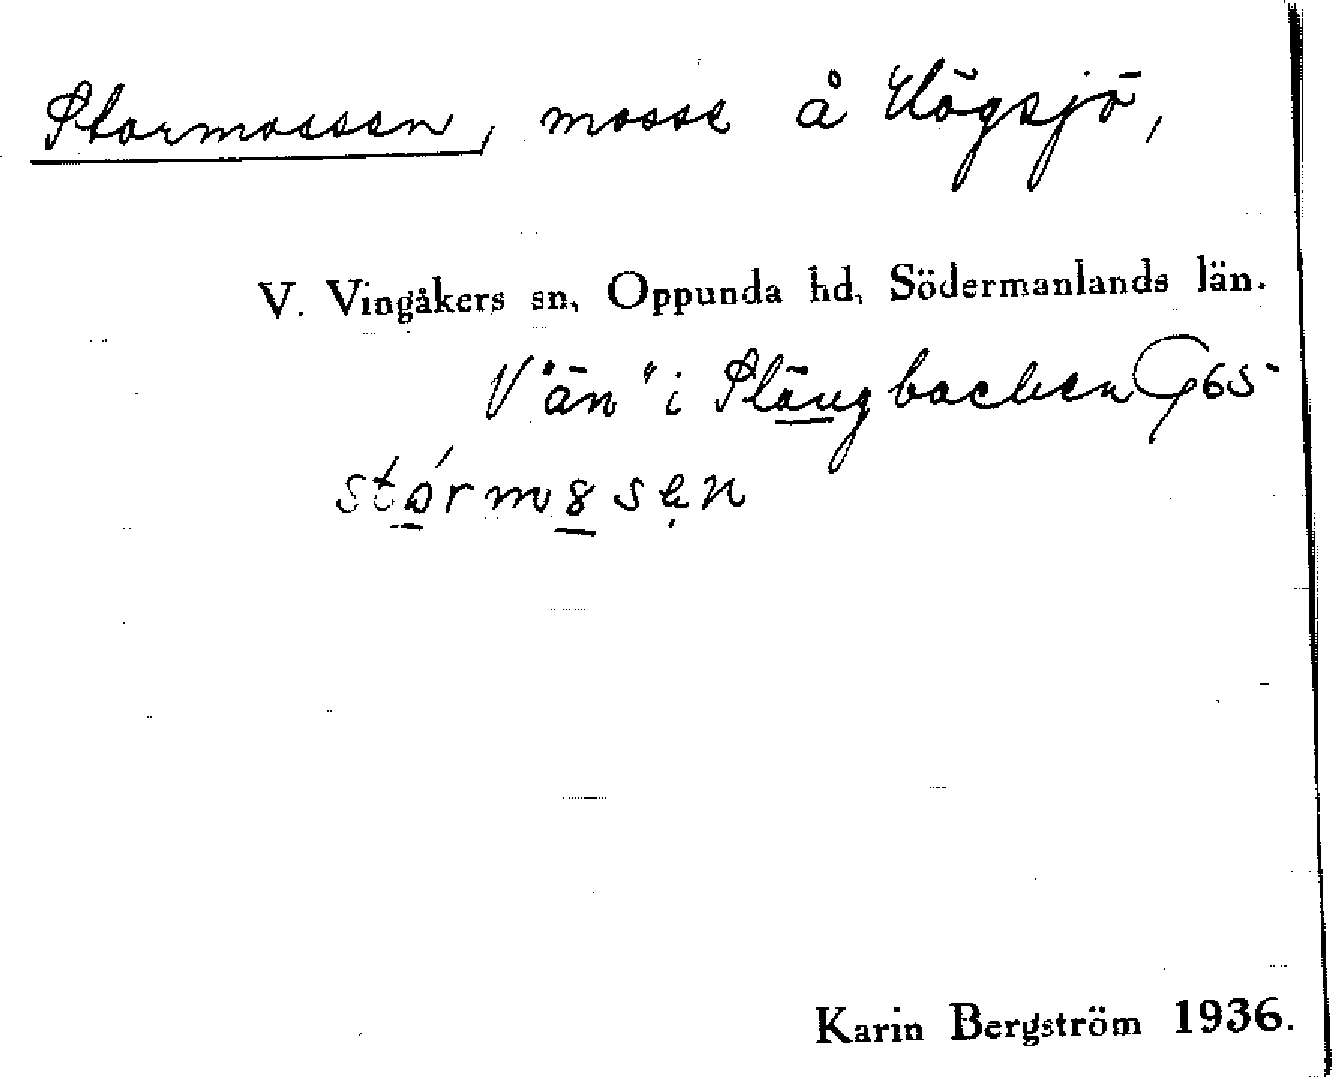 Stormossen, mosse å Högsjö,
V. Vingåkers sn, Oppunda hd, Södermanlands län.
V "än" i Slängbacken G 65
stormosen
Karin Bergström 1936.